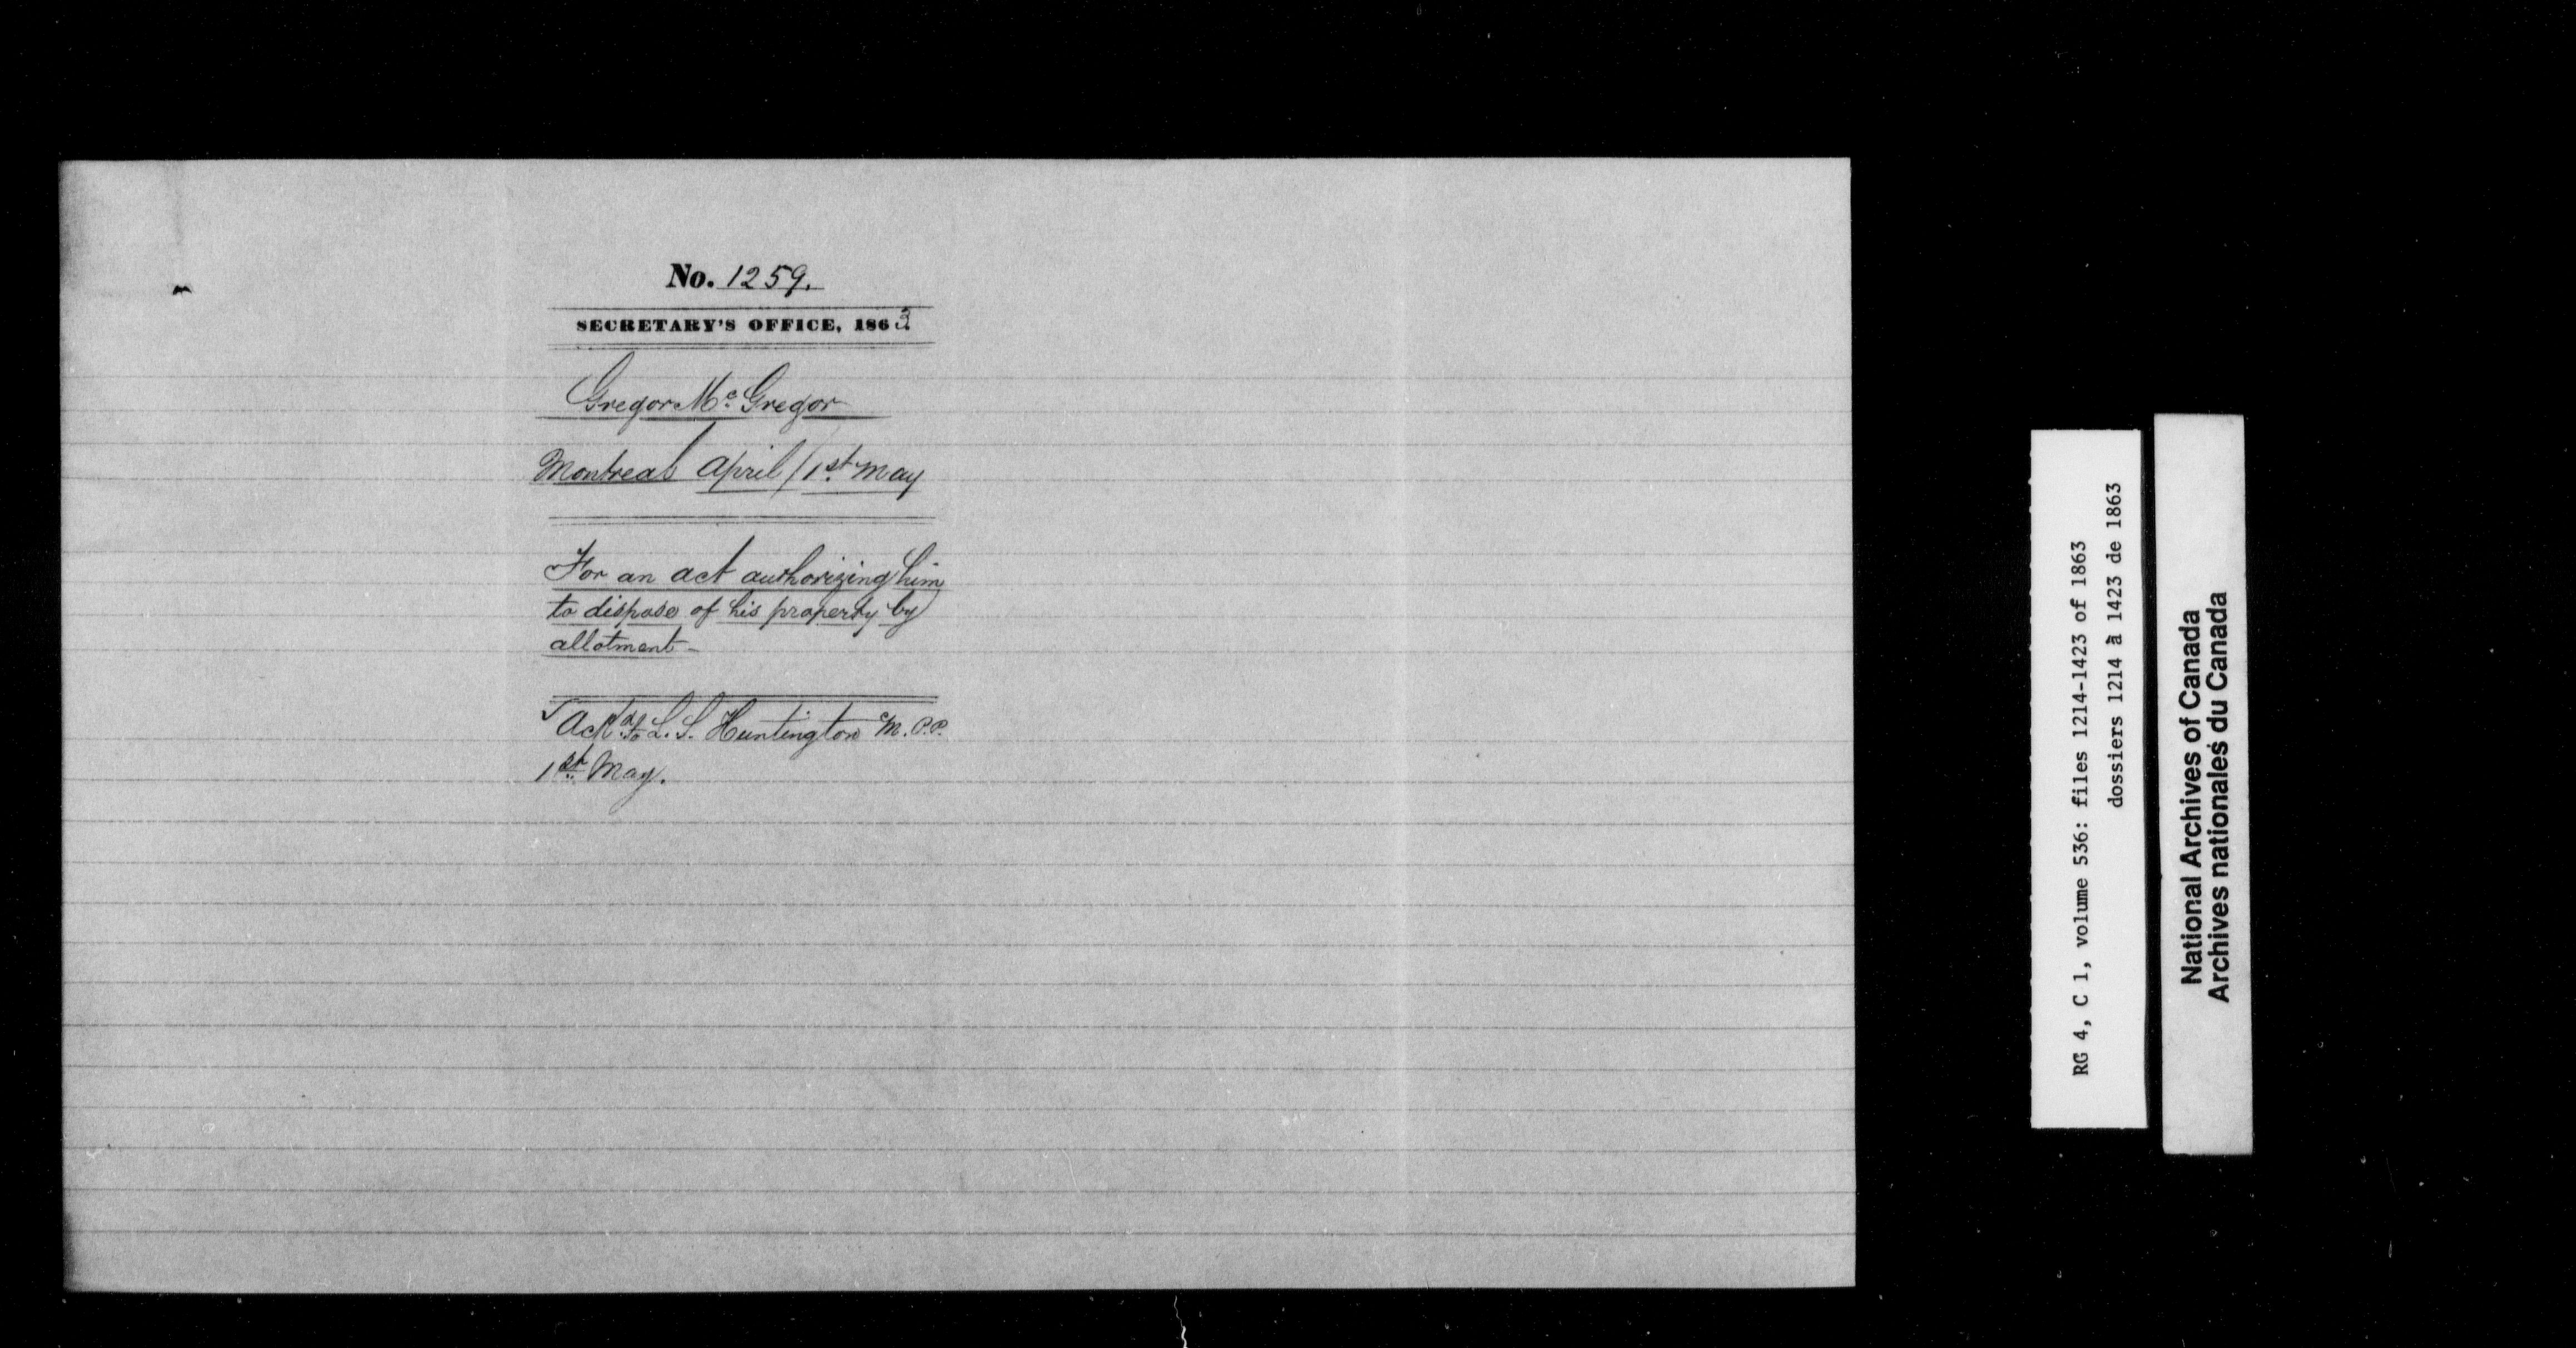 No. 1259.
SECRETARY'S OFFICE, 1863
Gregor Mc Gregor
Montreal April / 1st May
For an act authorizing him
to dispose of his property by
allotment -
Ackd to L. S. Huntington M.P.P.
1st May.
RG 4, C 1, volume 536: files 1214-1423 of 1863
dossiers 1214 à 1423 de 1863
National Archives of Canada
Archives nationales du Canada